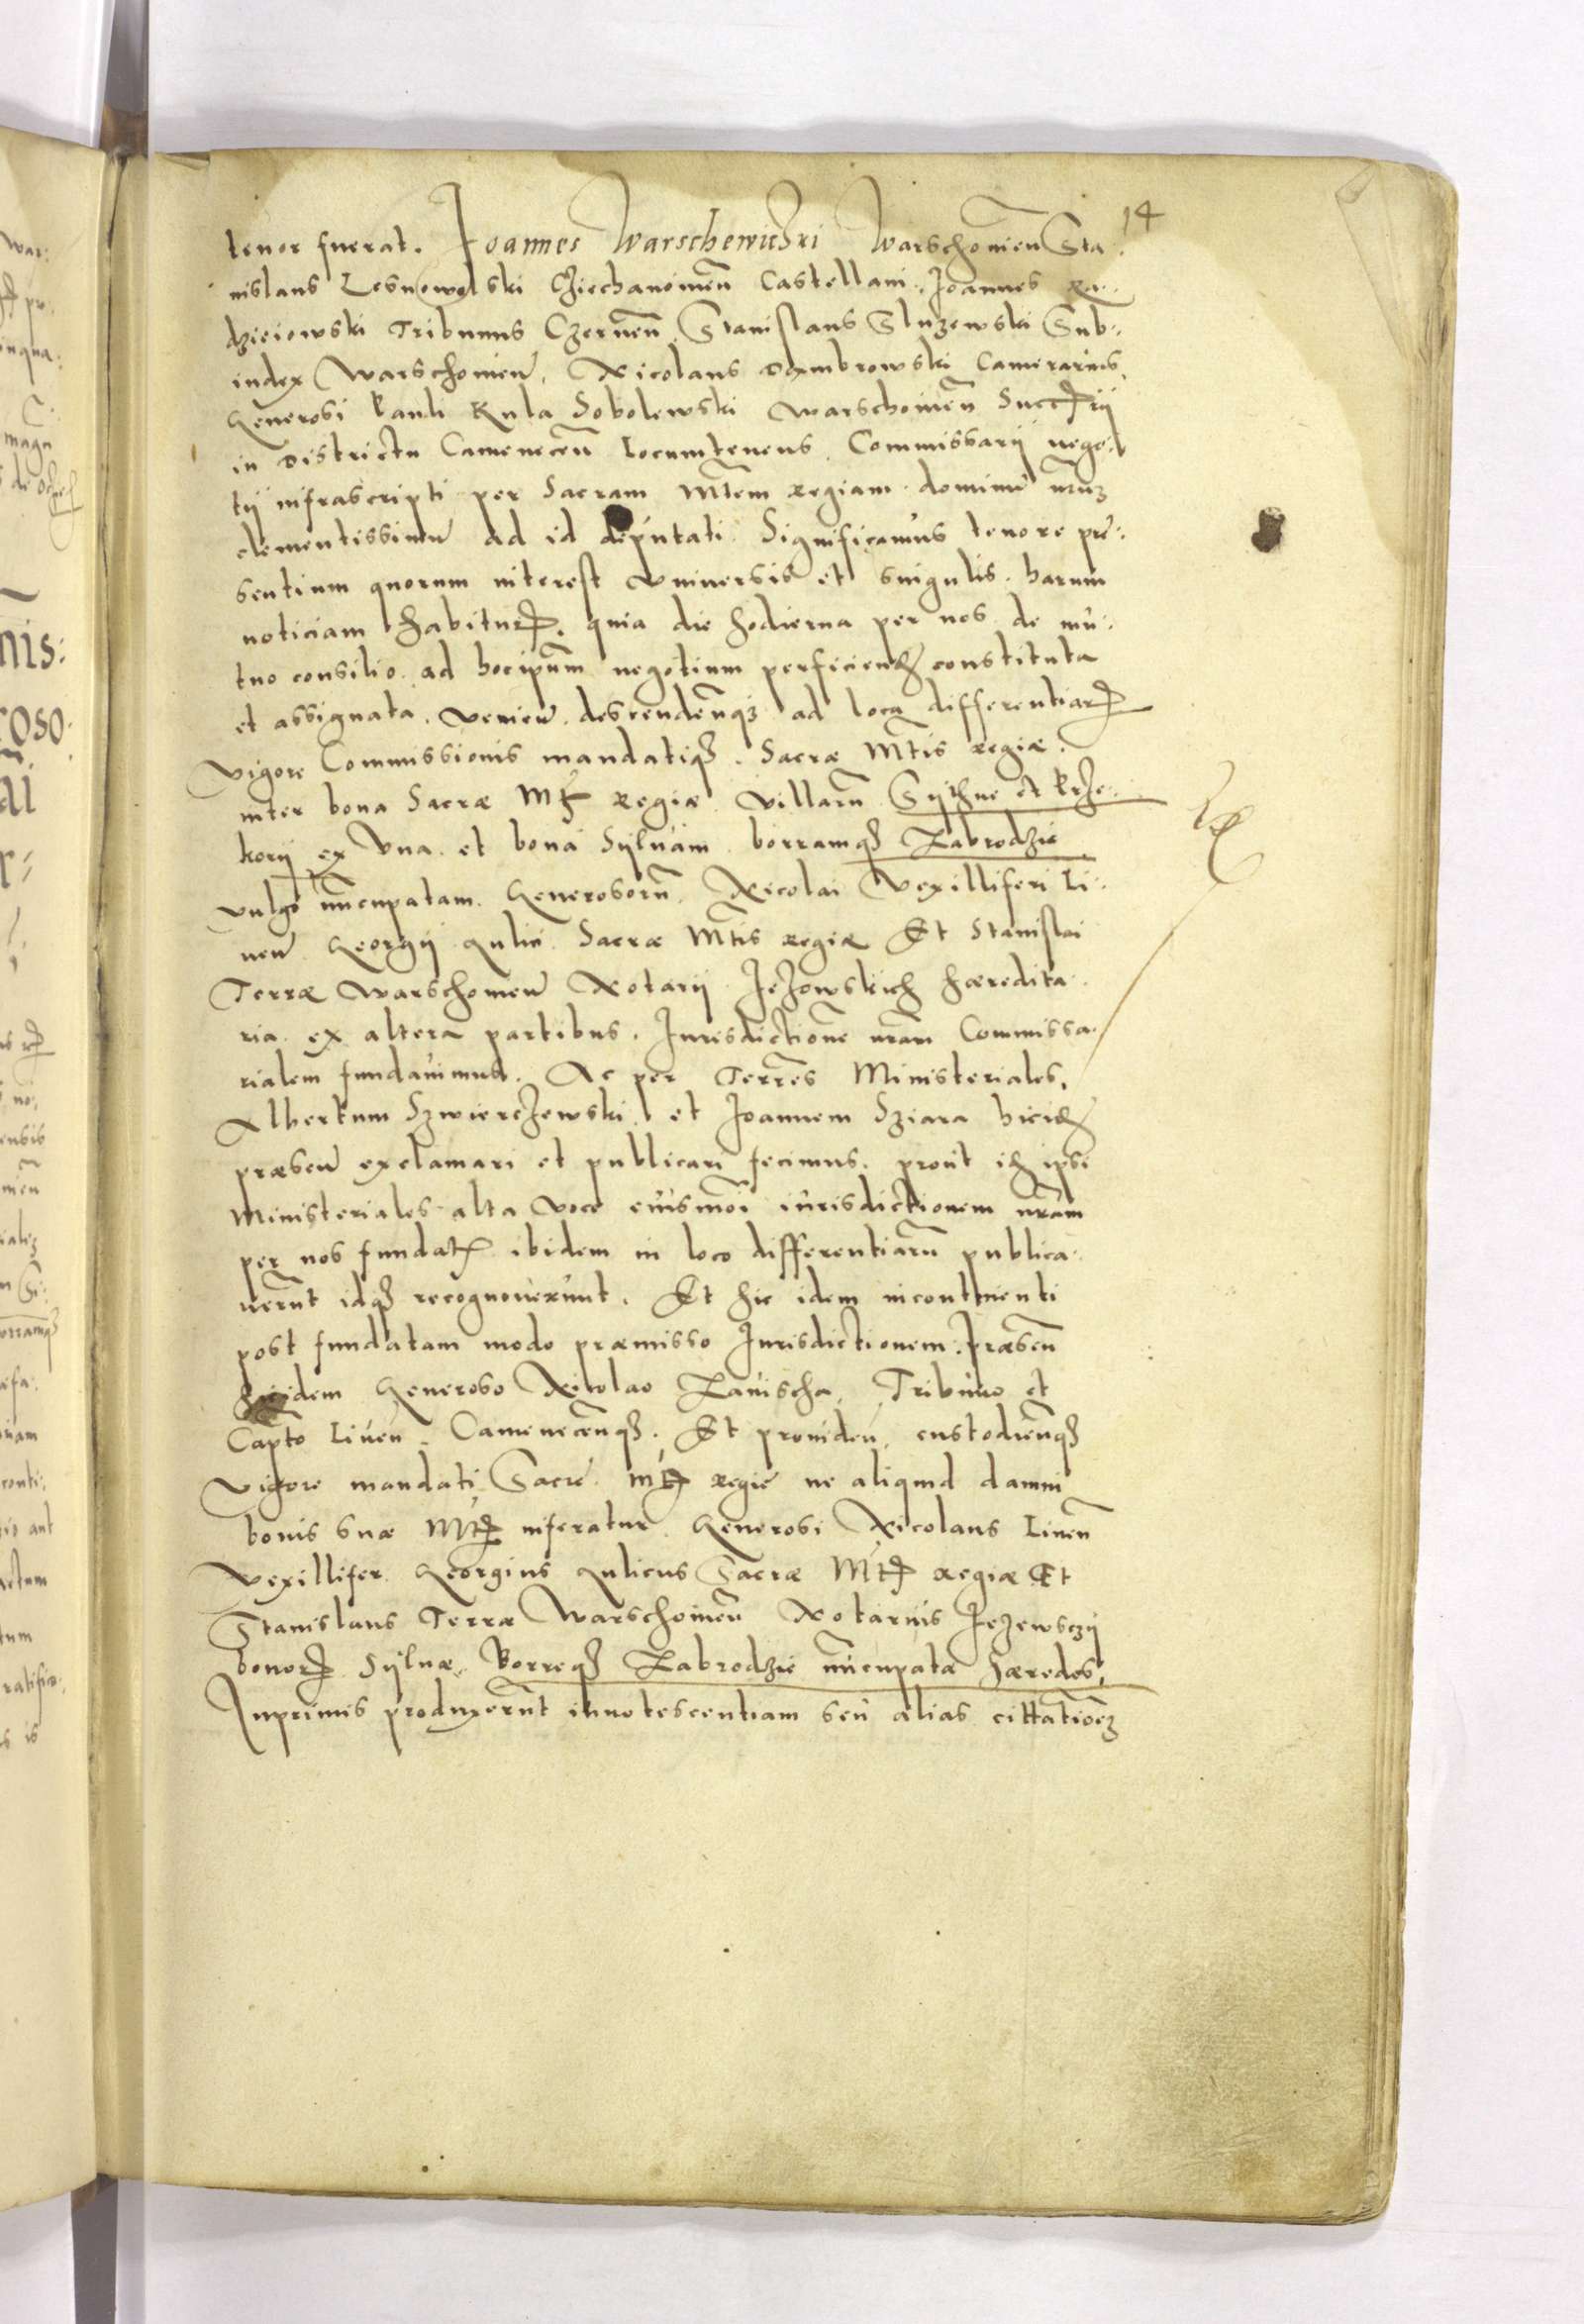 14
tenor fuerat. Joannes Warschewiczki Warschouien̄ Sta
nislaus Lesnowolski Cziechanouien̄ Castellani. Joannes Ra.
dzieiowski Tribunus Czernen̄ Stanislaus Sluzewski Sub:
iudex Warschouien̄. Nicolaus Dambrowski Camerarius
Generosi Pauli Kula Sobolewski Warschouien̄ Succ̄rij
in Districtu Camenecen̄ Locumtenens. Commissarij nego
tij infrascripti per Sacram M̄tem Regiam dominū nr̄um
clementissimū ad id deputati. Significamus tenore præ:
sentium quorum interest Vniuersis et singulis. harum
noticiam habituꝝ. quia die hodierna per nos de mu:
tuo consilio. ad hocip̄um negotium perficiend̄ constituta
et assignata. venien̄. descenden̄qꝫ ad loca differentiaꝝ
Vigore Commissionis mandatiqꝫ. Sacræ M̄tis Regiæ.
inter bona Sacræ M̄t Regiæ villarū Sythne et Krze.
korij ex Vna. et bona Syluam borramqꝫ Zabrodzie
vulgo nūcupatam. Generosorū. Nicolai Vexilliferi Li:
uen̄ Georgij Aulici Sacræ M̄tis Regiæ Et Stanislai
Terræ Warschouien̄ Notarij Jezowskich hæredita
ria. ex altera partibus. Jurisdictionē nr̄am Commissa.
rialem fundauimus. Ac per Terr̄es Ministeriales,
Albertum Szwierczewski et Joannem Sziara hicid̄
præsen̄ exclamari et publicari fecimus. prout id̄ ipsi
Ministeriales alta Voce euismōi iurisdictionem nr̄am
per nos fundat̄ ibidem in loco differentiarū publica.
uerūt idqꝫ recognouerunt. Et hic idem incontinenti
post fundatam modo præmisso Jurisdictionem. Præsen̄
ibidem Generoso Nicolao Zawischa, Tribuno et
Capt̄o Liuen̄. Camenecen̄qꝫ. Et prouiden̄, custodien̄qꝫ
Vigore mandati Sacræ M̄t Regiæ ne aliquid damni
bonis suæ M̄t inferatur. Generosi Nicolaus Liuen̄
Vexillifer Georgius Aulicus Sacræ M̄t Regiæ Et
Stanislaus Terræ Warschouien̄ Notarius Jezewsczij
bonoꝝ Syluæ, Borreqꝫ Zabrodzie nūcupatæ hæredes,
Inprimis produxerūt innotescentiam seu alias cittationē